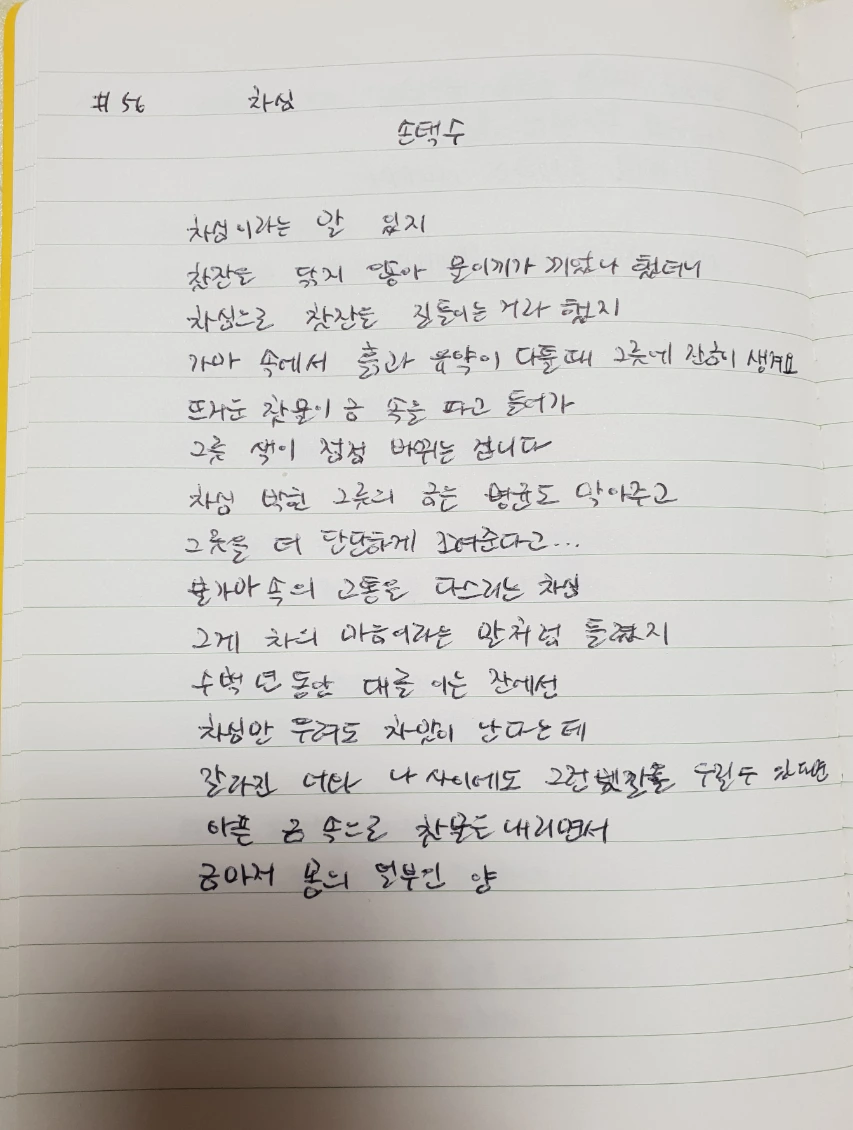 #56 차심
손택수
차심이라는 말 있지
찻잔을 닦지 않아 물이끼가 끼었나 했더니
차심으로 찻잔을 길들이는 거라 했지
가마 속에서 흙과 유약이 다툴때 그릇에 잔금이 생겨요
뜨거운 찻물이 금 속을 파고 들어가
그릇 색이 점점 바뀌는 겁니다
차심 박힌 그릇의 금은 병균도 막아주고
그릇을 더 단단하게 조여준다고...
불가마 속의 고통을 다스리는 차심
그게 차의 마음이라는 말처럼 들렸지
수백 년 동안 대를 이은 잔에선
차심만 우려도 차맛이 난다는데
갈라진 너와 나 사이에도 그런 빛깔을 우릴 수 있다면
아픈 금 속으로 찻물을 내리면서
금마저 몸의 일부인 양